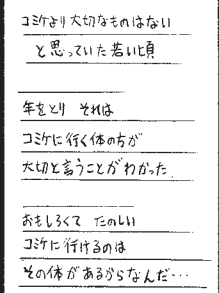 コミケより大切なものはない
と思っていた若い頃
年をとり それは
コミケに行く体の方が
大切と言うことがわかった
おもしろくて たのしい
コミケに行けるのは
その体があるからなんだ…